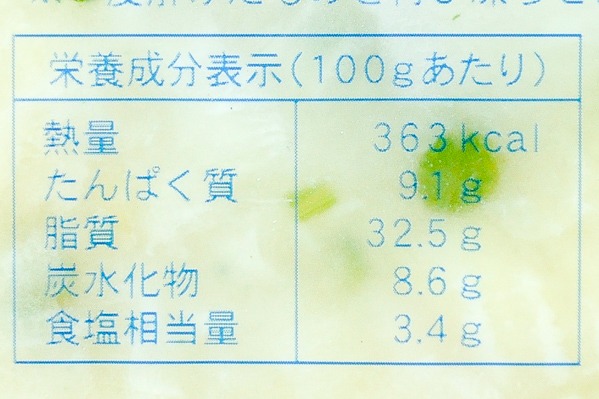 栄養成分表示(100gあたり)
熱量 363kcal
たんぱく質 9.1g
脂質 32.5g
炭水化物 8.6g
食塩相当量 3.4g